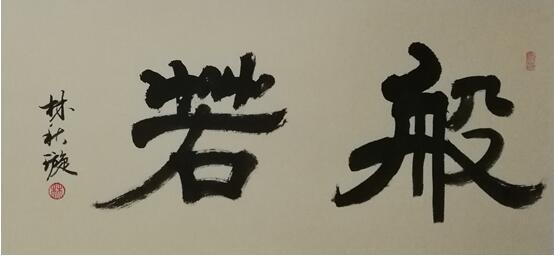 般若
林秋璇